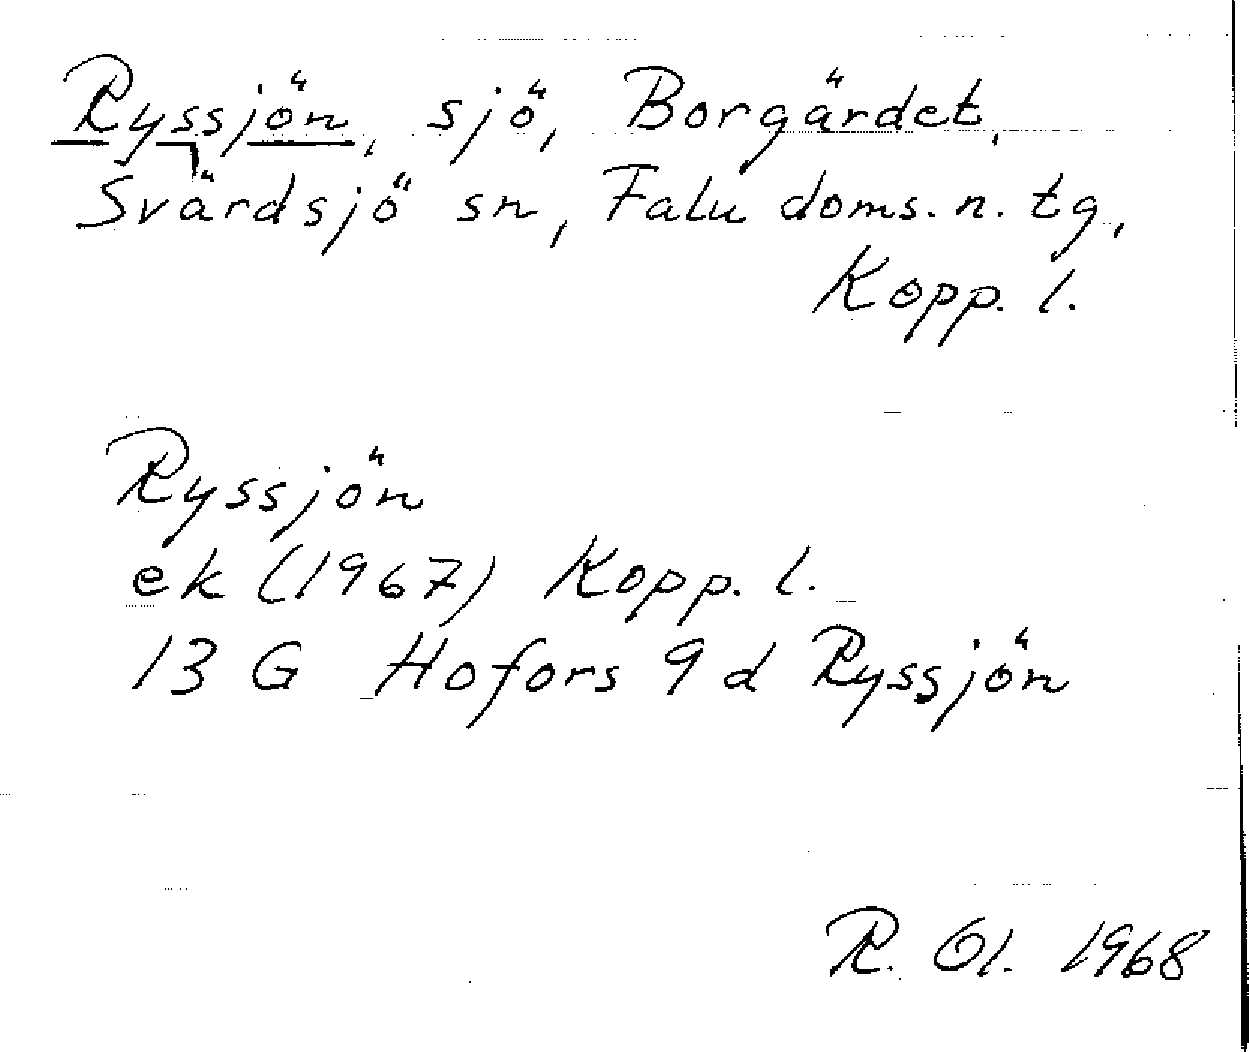 Ryssjön, sjö, Borgärdet,
Svärdsjö sn, Falu doms. n. tg,
Kopp. l.
Ryssjön
ek (1967) Kopp. l.
13 G Hofors 9 d Ryssjön
R. Ol. 1968